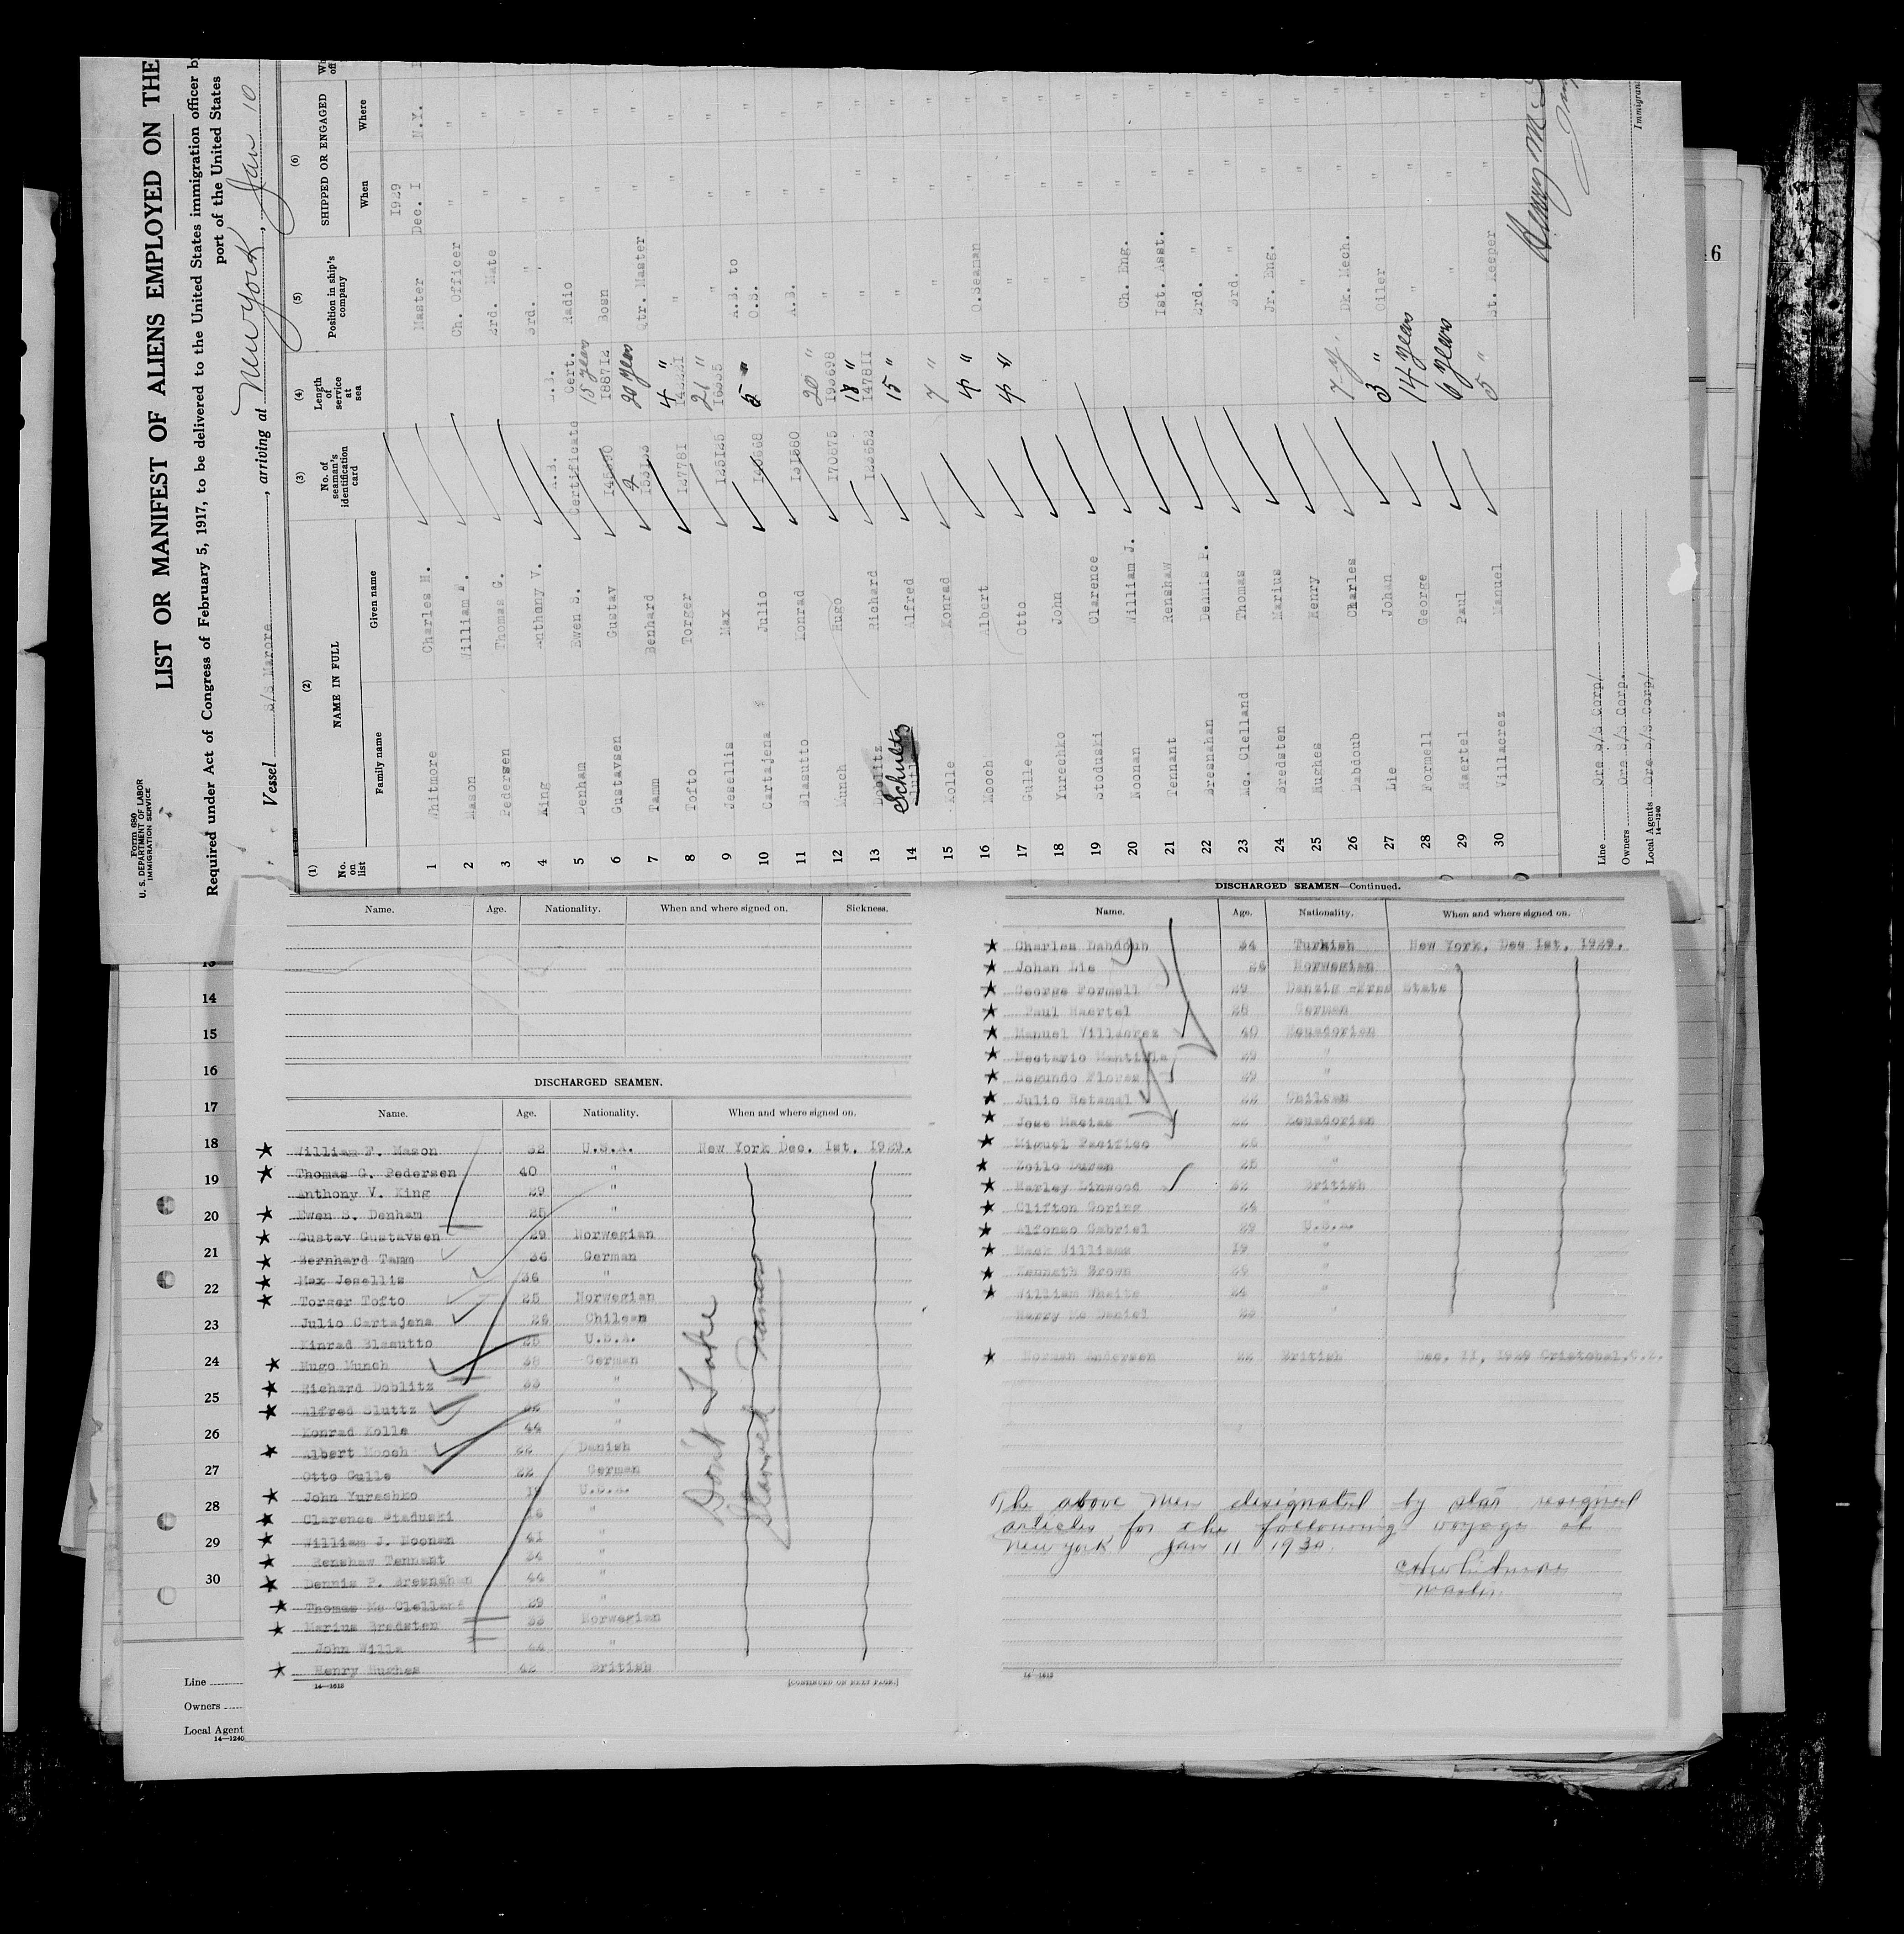 Form 680
U. S. DEPARTMENT OF LABOR
IMMIGRATION SERVICE
LIST OR MANIFEST OF ALIENS EMPLOYED ON THE
Required under Act of Congress of February 5, 1917, to be delivered to the United States immigration officer by
port of the United States
Vessel S/S Marore, arriving at New York, Jan 10
(1) (2) (3) (4) (5) (6)
No. on list NAME IN FULL No. of seaman's identification card Length of service at sea Position in ship's company SHIPPED OR ENGAGED
Family name Given name When Where
1929
1 Whitmore Charles H. Master Dec. I N.Y.
2 Mason William F. Ch. Officer " "
3 Pedersen Thomas G. 2rd. Mate " "
4 King Anthony V. 3rd. " " "
5 Denham Ewen S. Certificate Cert. Radio " "
6 Gustavsen Gustav 15 years 188712 Bosn " "
7 Tamm Benhard 153133 20 years Qtr. Master " "
8 Tofto Torger 127781 4 " " " "
9 Jesellis Max 125125 21 " " " "
10 Cartajena Julio 5 " A.B. to O.S. " "
11 Blasutto Konrad 131880 A.B. " "
12 Munch Hugo 170875 20 " 193698 " " "
13 Doblitz Richard 123652 18 " 147811 " " "
14 Schultz Alfred 15 " " " "
15 Kolle Konrad 7 " " " "
16 Mooch Albert 4 " O.Seaman " "
17 Gulle Otto 4 " " " "
18 Yurechko John " " "
19 Stoduski Clarence " " "
20 Noonan William J. Ch. Eng. " "
21 Tennant Renshaw Ist. Asst. " "
22 Bresnahan Dennis P. 2rd. " " "
23 Mc. Clelland Thomas 3rd. " " "
24 Bredsten Marius Jr. Eng. " "
25 Hughes Henry " " "
26 Dabdoub Charles 7 y. Dk. Mech. " "
27 Lie Johan 3 " Oiler " "
28 Formell George 14 years " " "
29 Haertel Paul 6 years " " "
30 Villacrez Manuel 5 " St. Keeper " "
Line Ore S/S Corp/
Owners Ore S/S Corp.
Local Agents Ore S/S Corp/
14—1240
Immigran
6
Name. Age. Nationality. When and where signed on. Sickness.
DISCHARGED SEAMEN.
Name. Age. Nationality. When and where signed on.
William F. Mason 32 U.S.A. New York Dec. 1st, 1929.
Thomas G. Pedersen 40 "
Anthony V. King 29 "
Ewen S. Denham 25 "
Gustav Gustavsen 29 Norwegian
Bernhard Tamm 36 German
Max Jesellis 36 "
Torger Tofto 25 Norwegian
Julio Cartajena 26 Chilean
Kinrad Blasutto 25 U.S.A.
Hugo Munch 38 German
Richard Doblitz 33 "
Alfred Sluttz "
Konrad Kolle 44 "
Albert Mooch 22 Danish
Otto Gulle 22 German
John Yureshko 19 U.S.A.
Clarence Staduski "
William J. Noonan 41 "
Renshaw Tennant 34 "
Dennis P. Bresnahan 44 "
Thomas Mc Clelland 29 "
Marius Bredsten 33 Norwegian
John Wills 44 "
Henry Hughes 42 British
Don't Take
14—1613
[CONTINUED ON NEXT PAGE.]
DISCHARGED SEAMEN—Continued.
Name. Age. Nationality. When and where signed on.
Charles Dabdoub 34 Turkish New York, Dec 1st, 1929.
Johan Lie 26 Norwegian
George Formell 29 Danzig -Free State
Paul Haertel 28 German
Manuel Villacrez 40 Ecuadorian
Nectario Mantilla 29 "
Segundo Flores 29 "
Julio Retamal 22 Chilean
Jose Macias 22 Ecuadorian
Miguel Pacifico 26 "
Zoilo Duran 25 "
Harley Linwood 32 British
Clifton Goring 24 "
Alfonso Gabriel 29 U.S.A.
Mack Williams 19 "
Kenneth Brown 26 "
William Whaite 24 "
Harry Mc Daniel 22 "
Norman Andersen 22 British Dec. II, 1929 Cristobal,C.Z.
The above men designated by star resigned
articles for the following voyage at
New York Jan 11 1930.
Master
14—1613
13
14
15
16
17
18
19
20
21
22
23
24
25
26
27
28
29
30
Line
Owners
Local Agent
14—1240